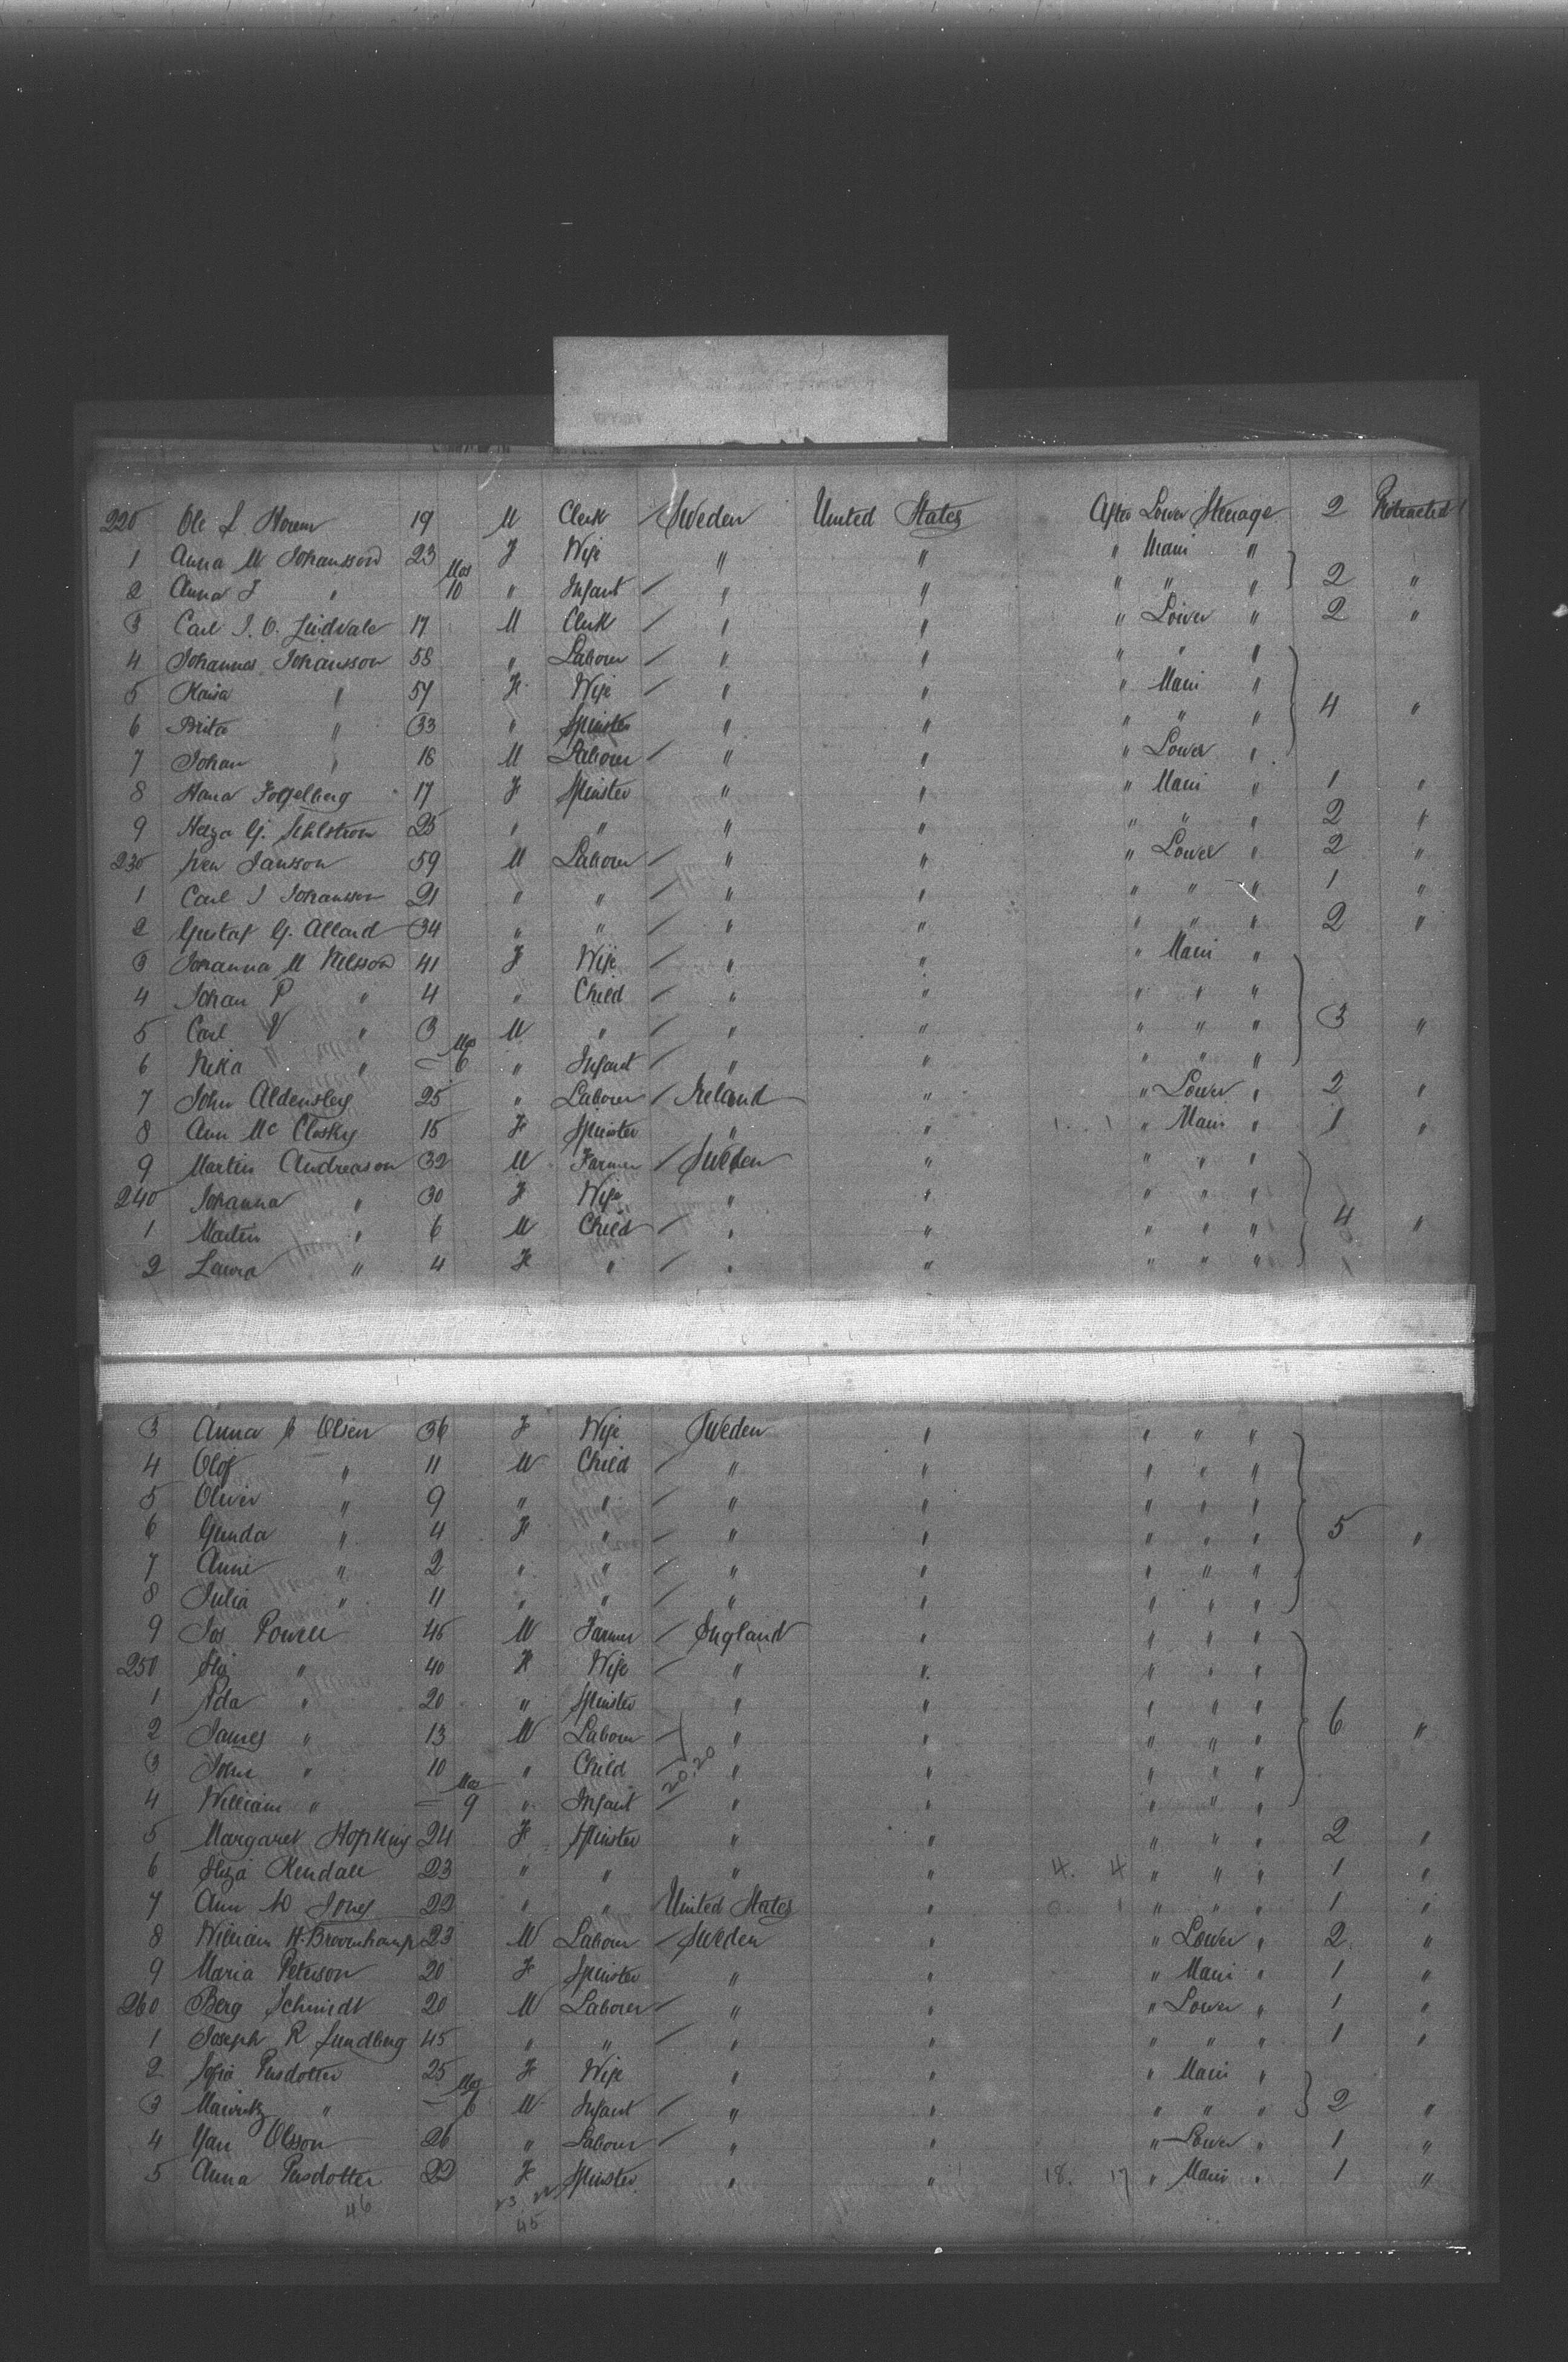 220 Ole L 19 M Clerk Sweden United States After Lower Steerage 2 Protracted
1 Anna M Johansson 23 F Wife " " " Main "
2 Anna J " Mos 10 " Infant / " " " " " 2 "
3 Carl J. O. Lindvale 17 M Clerk / " " " Lower " 2 "
4 Johannes Johansson 58 " Laborer / " " " " "
5 Kaisa " 57 F Wife / " " " Main "
6 Brita " 33 " Spinster " " " " " 4 "
7 Johan " 18 M Laborer / " " " Lower "
8 Hana Fogelberg 17 F Spinster " " " Main " 1 "
9 G. 25 " " " " " " " 2 "
230 Sven Jansson 59 M Laborer / " " " Lower " 2 "
1 Carl J Johansson 21 " " / " " " " " 1 "
2 Gustaf G. Allard 34 " " / " " " " " 2 "
3 Johanna M Nilsson 41 F Wife / " " " Main "
4 Johan P " 4 " Child / " " " " "
5 Carl V " 3 M " / " " " " " 3 "
6 " – Mos 6 " Infant / " " " " "
7 John 25 " Laborer / Ireland " " Lower " 2 "
8 Ann Mc Closky 15 F Spinster " " 1 . 1 " Main " 1 "
9 Martin Andreason 32 M Farmer / Sweden " " " "
240 Johanna " 30 F Wife " " " " "
1 Martin " 6 M Child / " " " " " 4 "
2 Laura " 4 F " / " " " " "
3 Anna Olsen 36 F Wife Sweden " " " "
4 Olof " 11 M Child / " " " " "
5 Oliver " 9 " " / " " " " "
6 Gunda " 4 F " / " " " " " 5 "
7 Anne " 2 " " / " " " " "
8 Julia " 11 " " / " " " " "
9 Jos Powell 45 M Farmer / England " " " "
250 " 40 F Wife / " " " " "
1 Ada " 20 " Spinster " " " " "
2 James " 13 M Laborer / " " " " " 6 "
3 John " 10 " Child / 20.20 " " " " "
4 William " – Mos 9 " Infant / " " " " "
5 Margaret Hopkins 24 F Spinster " " " " " 2 "
6 Eliza Kendall 23 " " " " 4. 4 " " " 1 "
7 Ann Jones 22 " " United States " 1 " " " 1 "
8 William H. 23 M Laborer / Sweden " " Lower " 2 "
9 Maria Peterson 20 F Spinster " " " Main " 1 "
260 Berg Schmidt 20 M Laborer / " " " Lower " 1 "
1 Joseph R Lundberg 45 " " / " " " " " 1 "
2 Sofia Persdotter 25 F Wife " " " Main "
3 " – Mos 6 M Infant / " " " " " 2 "
4 Olsson 26 " Laborer / " " " Lower " 1 "
5 Anna Persdotter 22 F Spinster " " 18. 17 " Main " 1 "
46 23 22
45